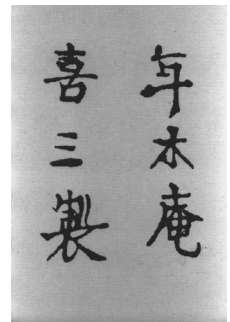 年木庵
喜三製